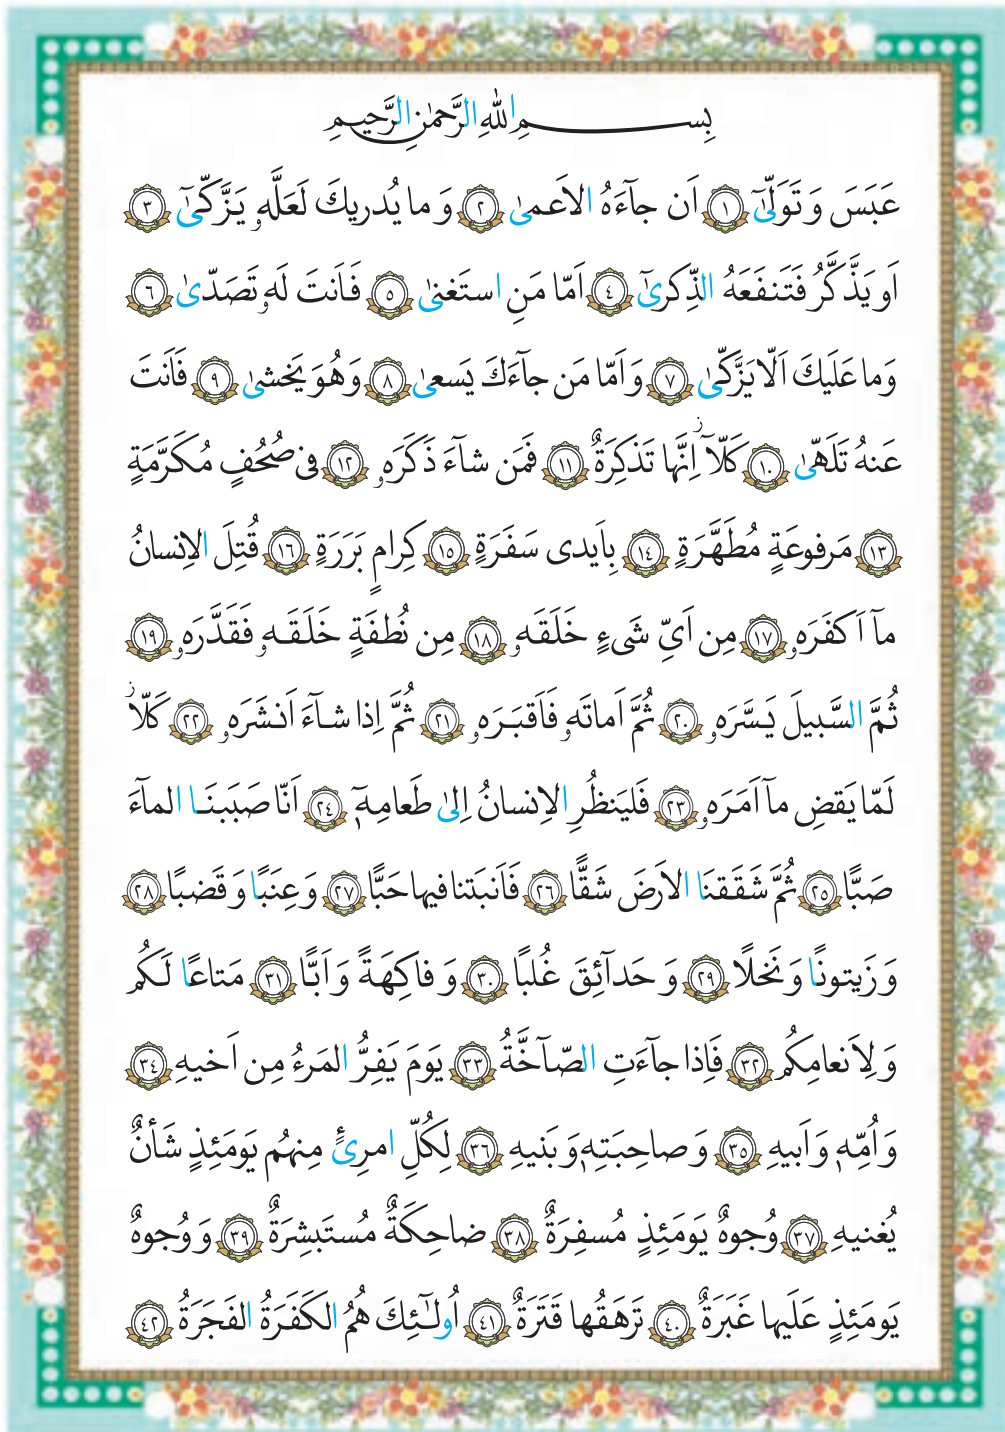 بِسمِ اللهِ الرَّحمٰنِ الرَّحيمِ
عَبَسَ وَ تَوَلّىٰٓ ﴿١﴾ اَن جآءَهُ الاَعمىٰ ﴿٢﴾ وَ ما يُدريكَ لَعَلَّهٗ يَزَّكّىٰٓ ﴿٣﴾
اَو يَذَّكَّرُ فَتَنفَعَهُ الذِّكرىٰٓ ﴿٤﴾ اَمّا مَنِ استَغنىٰ ﴿٥﴾ فَاَنتَ لَهٗ تَصَدّىٰ ﴿٦﴾
وَ ما عَلَيكَ اَلّا يَزَّكّىٰ ﴿٧﴾ وَ اَمّا مَن جآءَكَ يَسعىٰ ﴿٨﴾ وَ هُوَ يَخشىٰ ﴿٩﴾ فَاَنتَ
عَنهُ تَلَهّىٰ ﴿١٠﴾ كَلّآ اِنَّها تَذكِرَةٌ ﴿١١﴾ فَمَن شآءَ ذَكَرَهٗ ﴿١٢﴾ فى صُحُفٍ مُكَرَّمَةٍ
﴿١٣﴾ مَرفوعَةٍ مُطَهَّرَةٍ ﴿١٤﴾ بِاَيدى سَفَرَةٍ ﴿١٥﴾ كِرامٍ بَرَرَةٍ ﴿١٦﴾ قُتِلَ الاِنسانُ
مآ اَكفَرَهٗ ﴿١٧﴾ مِن اَىِّ شَىءٍ خَلَقَهٗ ﴿١٨﴾ مِن نُطفَةٍ خَلَقَهٗ فَقَدَّرَهٗ ﴿١٩﴾
ثُمَّ السَّبيلَ يَسَّرَهٗ ﴿٢٠﴾ ثُمَّ اَماتَهٗ فَاَقبَرَهٗ ﴿٢١﴾ ثُمَّ اِذا شآءَ اَنشَرَهٗ ﴿٢٢﴾ كَلّا
لَمّا يَقضِ مآ اَمَرَهٗ ﴿٢٣﴾ فَليَنظُرِ الاِنسانُ اِلىٰ طَعامِهٖٓ ﴿٢٤﴾ اَنّا صَبَبنَا الماءَ
صَبًّا ﴿٢٥﴾ ثُمَّ شَقَقنَا الاَرضَ شَقًّا ﴿٢٦﴾ فَاَنبَتنا فيها حَبًّا ﴿٢٧﴾ وَ عِنَبًا وَ قَضبًا ﴿٢٨﴾
وَ زَيتونًا وَ نَخلًا ﴿٢٩﴾ وَ حَدآئِقَ غُلبًا ﴿٣٠﴾ وَ فاكِهَةً وَ اَبًّا ﴿٣١﴾ مَتاعًا لَكُم
وَ لِاَنعامِكُم ﴿٣٢﴾ فَاِذا جآءَتِ الصّآخَّةُ ﴿٣٣﴾ يَومَ يَفِرُّ المَرءُ مِن اَخيهِ ﴿٣٤﴾
وَ اُمِّهٖ وَ اَبيهِ ﴿٣٥﴾ وَ صاحِبَتِهٖ وَ بَنيهِ ﴿٣٦﴾ لِكُلِّ امرِئٍ مِنهُم يَومَئِذٍ شَأنٌ
يُغنيهِ ﴿٣٧﴾ وُجوهٌ يَومَئِذٍ مُسفِرَةٌ ﴿٣٨﴾ ضاحِكَةٌ مُستَبشِرَةٌ ﴿٣٩﴾ وَ وُجوهٌ
يَومَئِذٍ عَلَيها غَبَرَةٌ ﴿٤٠﴾ تَرهَقُها قَتَرَةٌ ﴿٤١﴾ اُولٰٓئِكَ هُمُ الكَفَرَةُ الفَجَرَةُ ﴿٤٢﴾